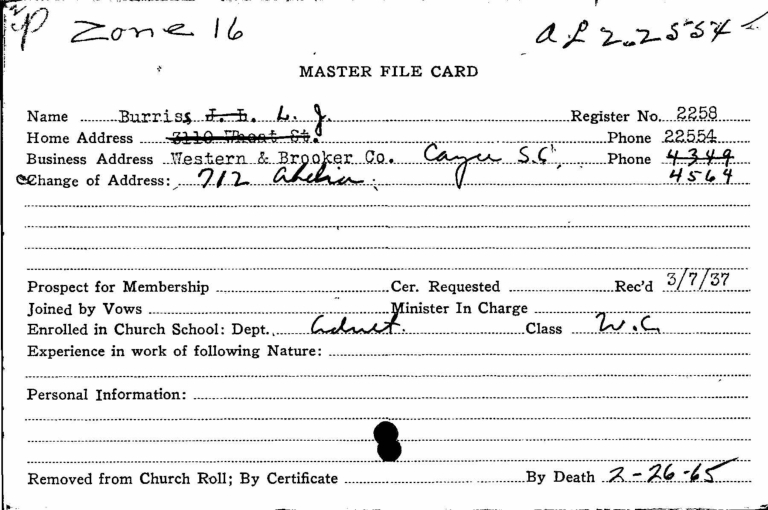 Zone 16
AL 2.2554
MASTER FILE CARD
Name Burriss J. L. L. J. Register No. 2258
Home Address 3110 Wheat St. Phone 22554
Business Address Western & Brooker Co. Cayce S.C. Phone 4349
Change of Address: 712 Abelia 4564
Prospect for Membership Cer. Requested Rec'd 3/7/37
Joined by Vows Minister In Charge
Enrolled in Church School: Dept. Adult. Class W.C.
Experience in work of following Nature:
Personal Information:
Removed from Church Roll; By Certificate By Death 2-26-65